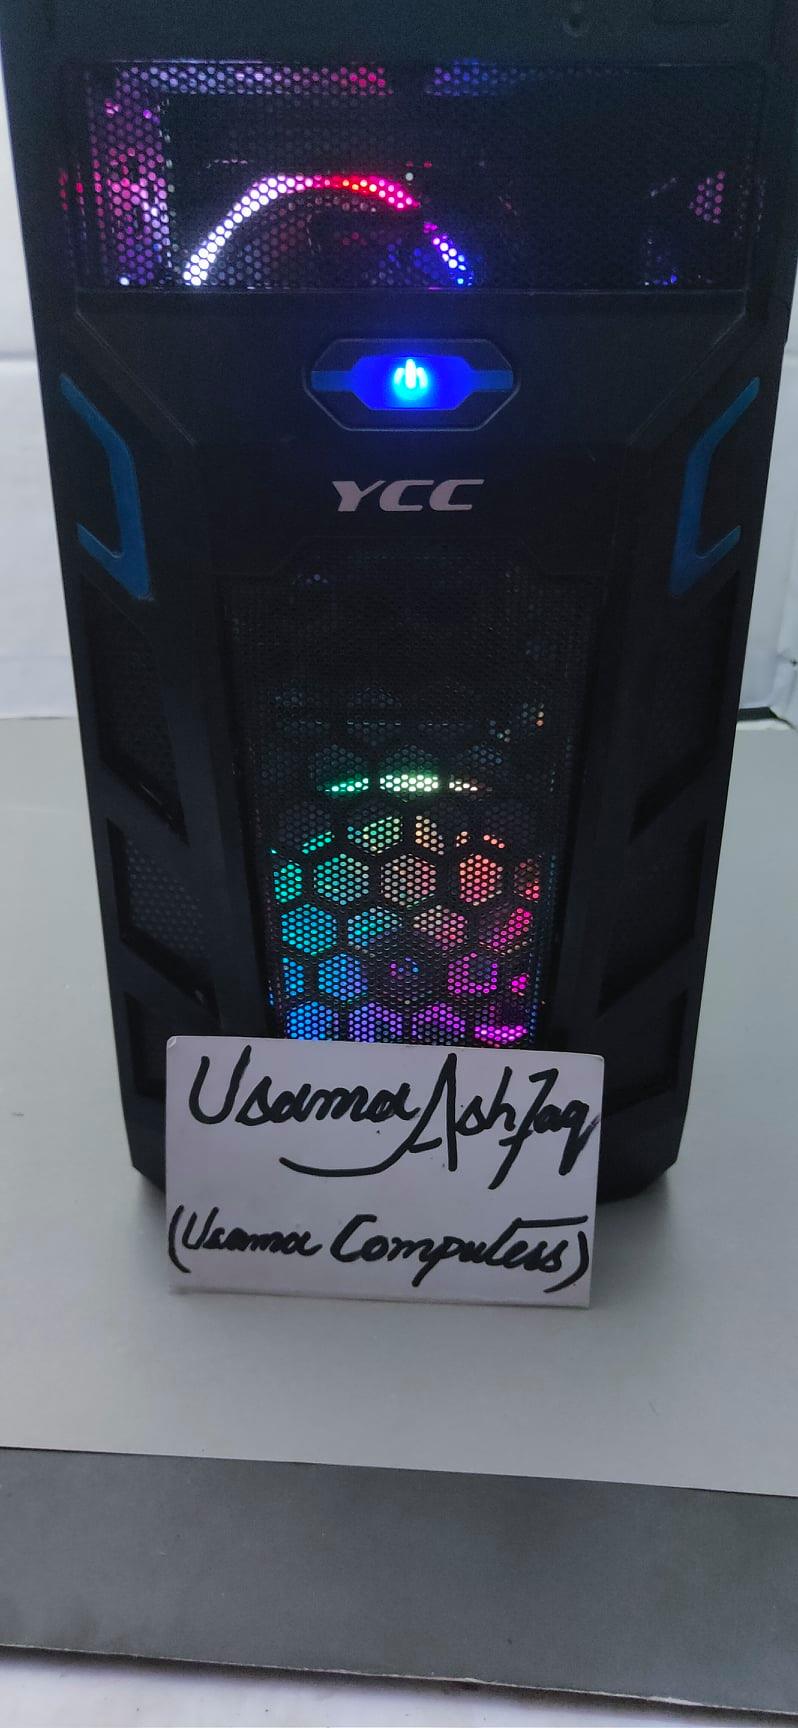 YCC
Usama Ashfaq
(Usama Computers)